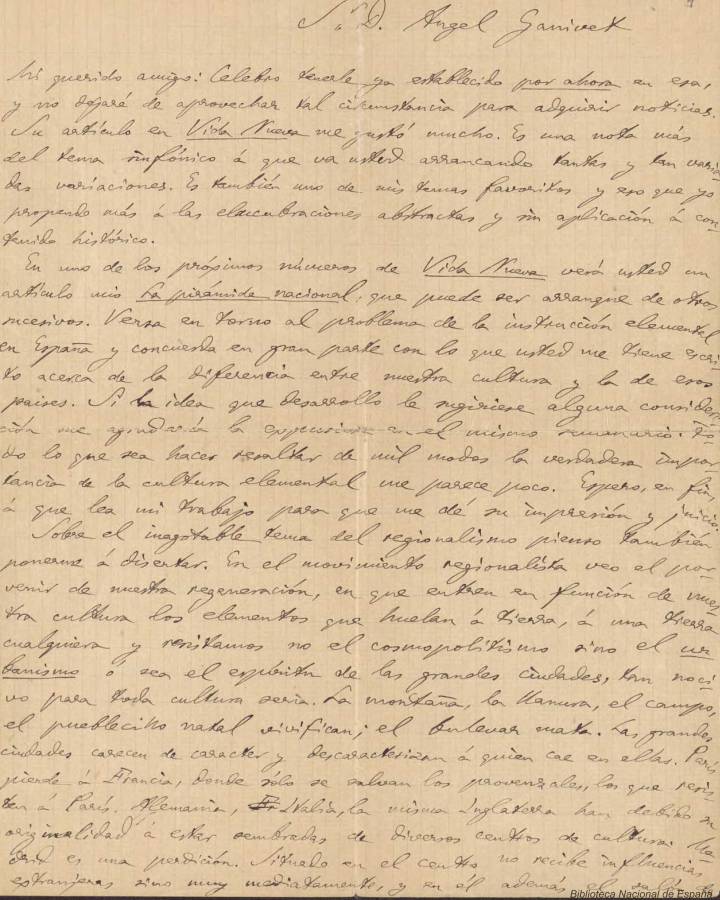 Sr D. Angel Ganivet
Mi querido amigo: Celebro tenerle ya establecido por ahora en esa,
y no dejaré de aprovechar tal circunstancia para adquirir noticias.
Su artículo en Vida Nueva me gustó mucho. Es una nota más
del tema sinfónico á que va usted arrancando tantas y tan varia-
das variaciones. Es también uno de mis temas favoritos y eso que yo
propendo más á las elucubraciones abstractas y sin aplicación á con-
tenido histórico.
En uno de los próximos números de Vida Nueva verá usted un
artículo mio La pirámide nacional, que puede ser arranque de otros
sucesivos. Versa en torno al problema de la instrucción elemental
en España y concuerda en gran parte con lo que usted me tiene escri-
to acerca de la diferencia entre nuestra cultura y la de esos
paises. Si la idea que desarrollo le sugiriese alguna considera-
ción me agradaría la expresase en el mismo semanario. To-
do lo que sea hacer resaltar de mil modos la verdadera impor-
tancia de la cultura elemental me parece poco. Espero, en fin,
á que lea mi trabajo para que me dé su impresión y juicio.
Sobre el inagotable tema del regionalismo pienso también
ponerme á disertar. En el movimiento regionalista veo el por-
venir de nuestra regeneración, en que entren en función de nues-
tra cultura los elementos que huelan á tierra, á una tierra
cualquiera y resistamos no el cosmopolitismo sino el ur-
banismo ó sea el espíritu de las grandes ciudades, tan noci-
vo para toda cultura seria. La montaña, la llanura, el campo,
el pueblecillo natal vivifican; el bulevar mata. Las grandes
ciudades carecen de caracter y descaracterizan á quien cae en ellas. París
pierde á Francia, donde sólo se salvan los provenzales, los que resis-
ten á París. Alemania, Italia, la misma Inglaterra han debido su
originalidad á estar sembradas de diversos centros de cultura. Ma-
drid es una perdición. Situado en el centro no recibe influencias
estranjeras sino muy mediatamente, y en él además el
Biblioteca Nacional de España